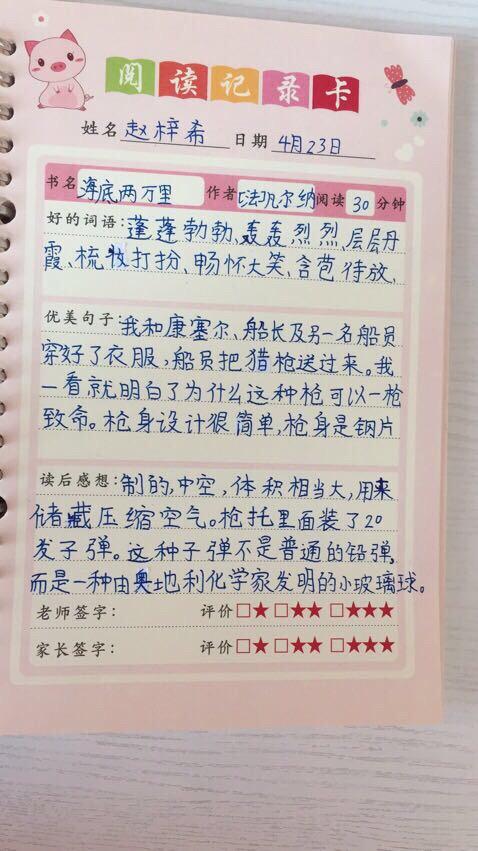 阅读记录卡
姓名 赵梓希 日期 4月23日
书名 海底两万里 作者 (法)凡尔纳 阅读 30 分钟
好的词语：蓬蓬勃勃、轰轰烈烈、层层丹
霞、梳妆打扮、畅怀大笑、含苞待放、
优美句子：我和康塞尔、船长及另一名船员
穿好了衣服，船员把猎枪送过来。我
一看就明白了为什么这种枪可以一枪
致命。枪身设计很简单，枪身是钢片
读后感想：制的，中空，体积相当大，用来
储藏压缩空气。枪托里面装了20
发子弹。这种子弹不是普通的铅弹，
而是一种由奥地利化学家发明的小玻璃球。
老师签字： 评价□★□★★□★★★
家长签字： 评价□★□★★□★★★